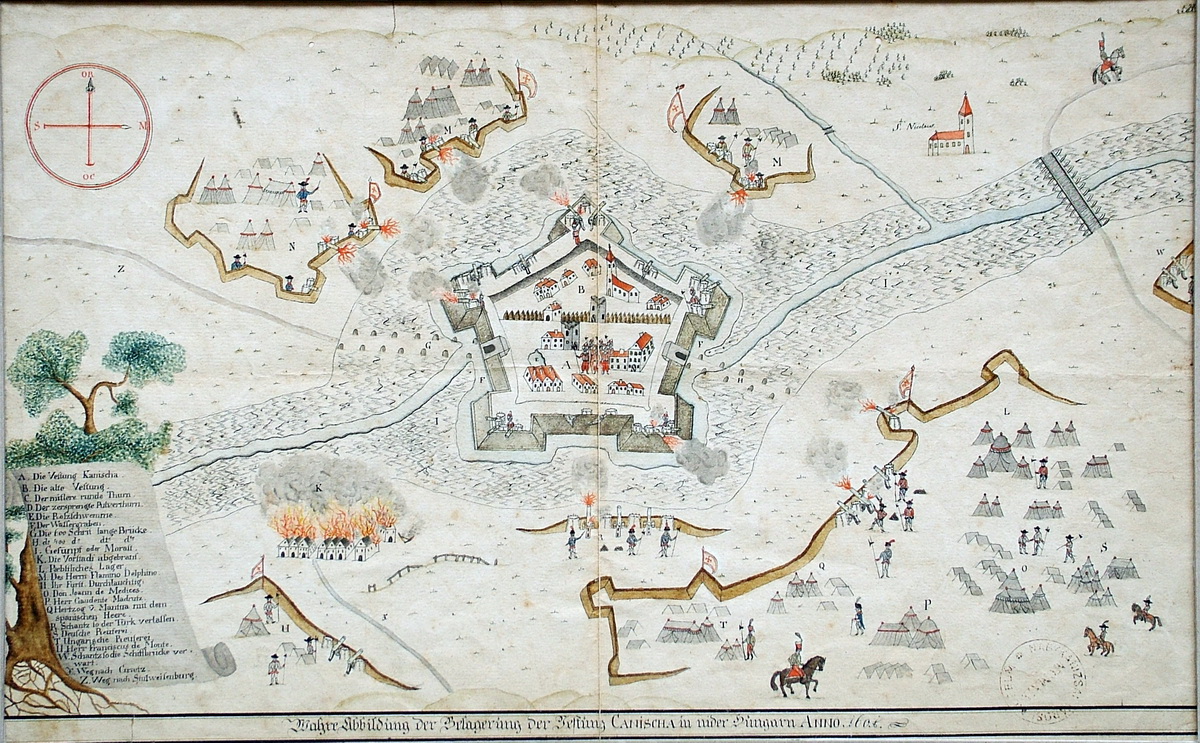 OR
S
M
OC
St. Nicolaus
M
M
N
Z
B
A
G
F
F
H
I
I
W
K
L
Q
O
S
P
T
H
X
A. Die Vestung Kanischa.
B. Die alte Vestung.
C. Der mitlere runde Thurn
D. Der zersprengte Pulverthurn.
E. Die Rosschwemme.
F. Der Wassergraben.
G. Die 600 Schrit lange Brücke
H. dt 400 dt dt dt
I. Gesümpf oder Morast.
K. Die Vorstadt abgebrant.
L. Päbstliches Lager.
M. Des Herr Flamino Delphino.
N. Ihr Fürstl. Durchlauchtig.
O. Don Joann de Medices.
P. Herr Gaudentz Madrutz.
Q. Hertzog v. Mantua mit dem
spanischen Heere
R. Schantz so der Türk verlassen
S. Deutsche Reuterei.
T. Ungarische Reuterei.
U. Herr Franciscus de Monte.
W. Schantz so die Schifbrücke ver
wart.
Z. Weg nach Stulweissenburg.
Wahre Abbildung der Belagerung der Vestung CANISCHA in nider Hungarn ANNO.